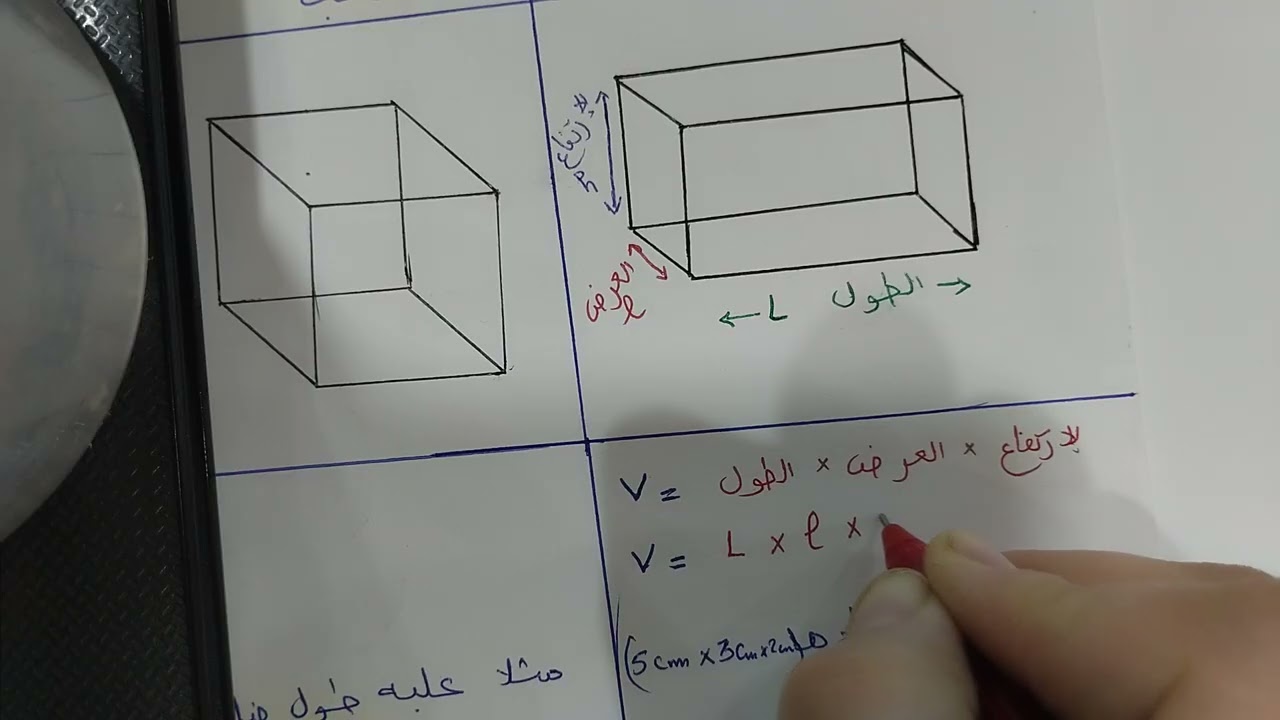 الارتفاع
h
العرض
l
← L الطول →
V = الطول × العرض × الارتفاع
V = L × l ×
(5cm × 3cm × 2cm)
مثلا علبه طول